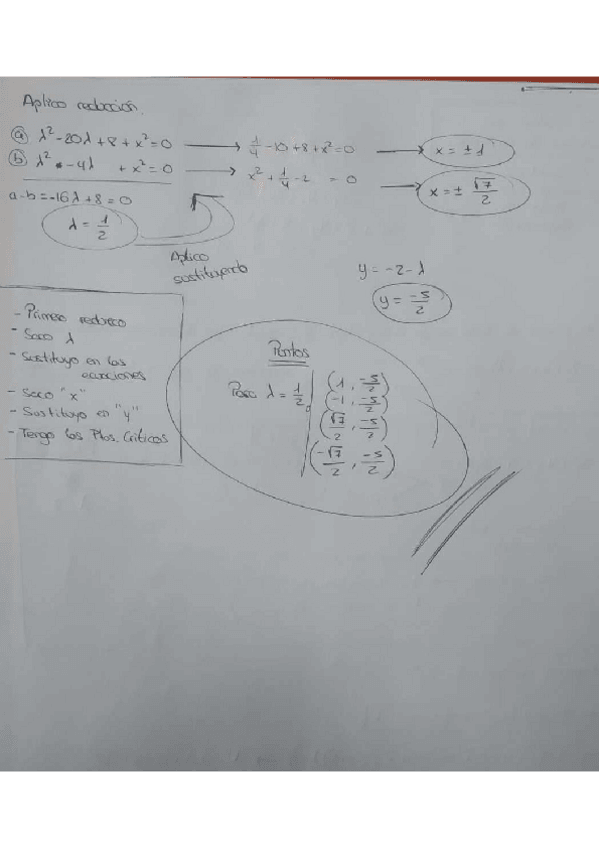 Aplico reducción.
ⓐ λ²-20λ+8+x²=0 → 1/4 -10+8+x²=0 → x = ±1
ⓑ λ² -4λ + x²=0 → x² + 1/4 -2 = 0 → x = ± √7/2
a-b = -16λ+8=0
λ = 1/2
Aplico
sustituyendo
y = -2-λ
y = -5/2
- Primero reduzco
- Saco λ
- Sustituyo en las
ecuaciones
- Saco "x"
- Sustituyo en "y"
- Tengo los Ptos. Críticos
Puntos
Para λ = 1/2
(1, -5/2)
(-1, -5/2)
(√7/2, -5/2)
(-√7/2, -5/2)